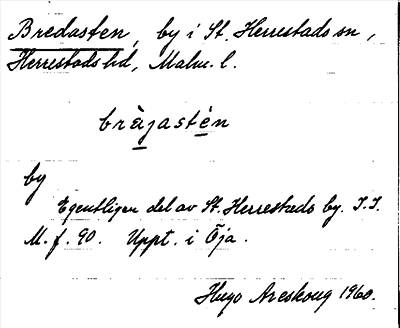 Bredasten, by i St. Herrestads sn,
Herrestads hd, Malm. l.
bràjastèn
by
Egentligen del av St. Herrestads by. I.I.
M. f. 90. Uppt. i Öja.
Hugo Areskoug 1960.